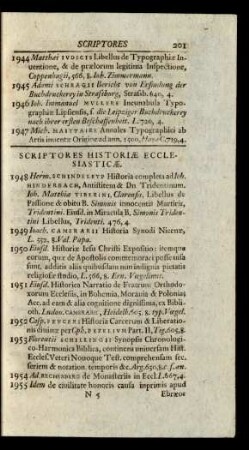 SCRIPTORES 201
1944 Matthei IVDICIS Libellus de Typographiæ In-
uentione, & de prælorum legitima Inspectione,
Coppenhagii, 566, 8. Joh. Zimmermann.
1945 Adami SCHRAGII Bericht von Erfindung der
Buchdruckerey in Straßburg, Strasb. 640, 4.
1946 Joh. Immanuel MVLLERS Incunabula Typo-
graphiæ Lipsiensis, s. die Leipziger Buchdruckerey
nach ihrer ersten Beschaffenheit. L. 720, 4.
1947 Mich. MAITTAIRE Annales Typographici ab
Artis inuentæ Origine ad ann. 1500, 719, 4.
SCRIPTORES HISTORIÆ ECCLE-
SIASTICÆ.
1948 Herm. SCHINDELEYP Historia completa ad Joh.
HINDERBACH, Antistitem & Dn. Tridentinum.
Joh. Matthiæ TIBERINI, Clarensis, Libellus de
Passione & obitu B. Simonis innocentis Martiris,
Tridentini. Eiusd. in Miracula B. Simonis Triden-
tini Libellus, Tridenti. 476, 4.
1949 Joach. CAMERARII Historia Synodi Nicenæ,
L. 552, 8. Val. Papa.
1950 Eiusd. Historiæ Iesu Christi Expositio: itemque
eorum, quæ de Apostolis commemorari posse visa
sunt, additis aliis quibusdam non indignis pietatis
religiosæ studio, L. 566, 8. Ern. Vœgelinus.
1951 Eiusd. Historica Narratio de Fratrum Orthodo-
xorum Ecclesiis, in Bohemia, Morauia & Polonia:
Acc. ad eam & alia cognitione dignissima, ex Biblio-
oth. Ludou. CAMERARII, Heidelb. 605, 8. typ. Vægel.
1952 Casp. PEVCERI Historia Carcerum & Liberatio-
nis diuinæ per Cph. PEZELIVM Part. II, Tig. 605, 8.
1953 Florentii SCHILLINGI Synopsis Chronologi-
co-Harmonica Biblica, continens uniuersam Hist.
Eccles. Veteri Nouoque Test. comprehensam sec.
seriem & notation. temporis &c. Arg. 650, 8.
1954 de Monasteriis in Eccl. L. 867, 4.
1955 Idem de ciuilitate honoris causa inprimis apud
N 5 Ebræos